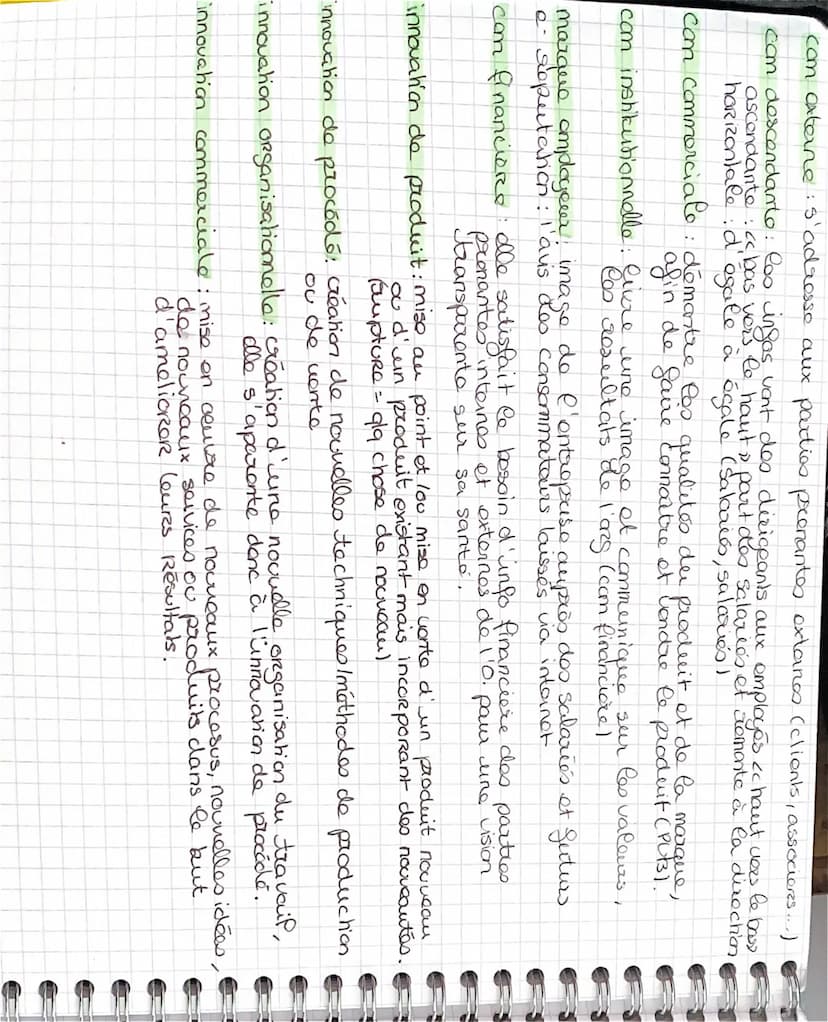 com externe : s'adresse aux parties prenantes externes (clients, associers...)
com descendante : les infos vont des dirigeants aux employés << haut vers le bas
ascendante : << bas vers le haut >> part des salariés et remonte à la direction
horizontale : d'égale à égale (salariés, salariés)
com commerciale : démontre les qualités du produit et de la marque,
afin de faire connaître et vendre le produit (PUB).
com institutionnelle : livre une image et communique sur les valeurs,
les résultats de l'org (com financière)
marque employeur : image de l'entreprise auprès des salariés et futurs
e-réputation : l'avis des consommateurs laissés via internet
com financière : elle satisfait le besoin d'info financière des parties
prenantes internes et externes de l'O. pour une vision
transparente sur sa santé.
innovation de produit : mise au point et/ou mise en vente d'un produit nouveau
ou d'un produit existant mais incorporant des nouveautés.
(rupture = qq chose de nouveau)
innovation de procédé : création de nouvelles techniques/méthodes de production
ou de vente
innovation organisationnelle : création d'une nouvelle organisation du travail,
elle s'aparente donc à l'innovation de procédé.
innovation commerciale : mise en oeuvre de nouveaux procesus, nouvelles idées,
de nouveaux services ou produits dans le but
d'ameliorer leurs résultats.